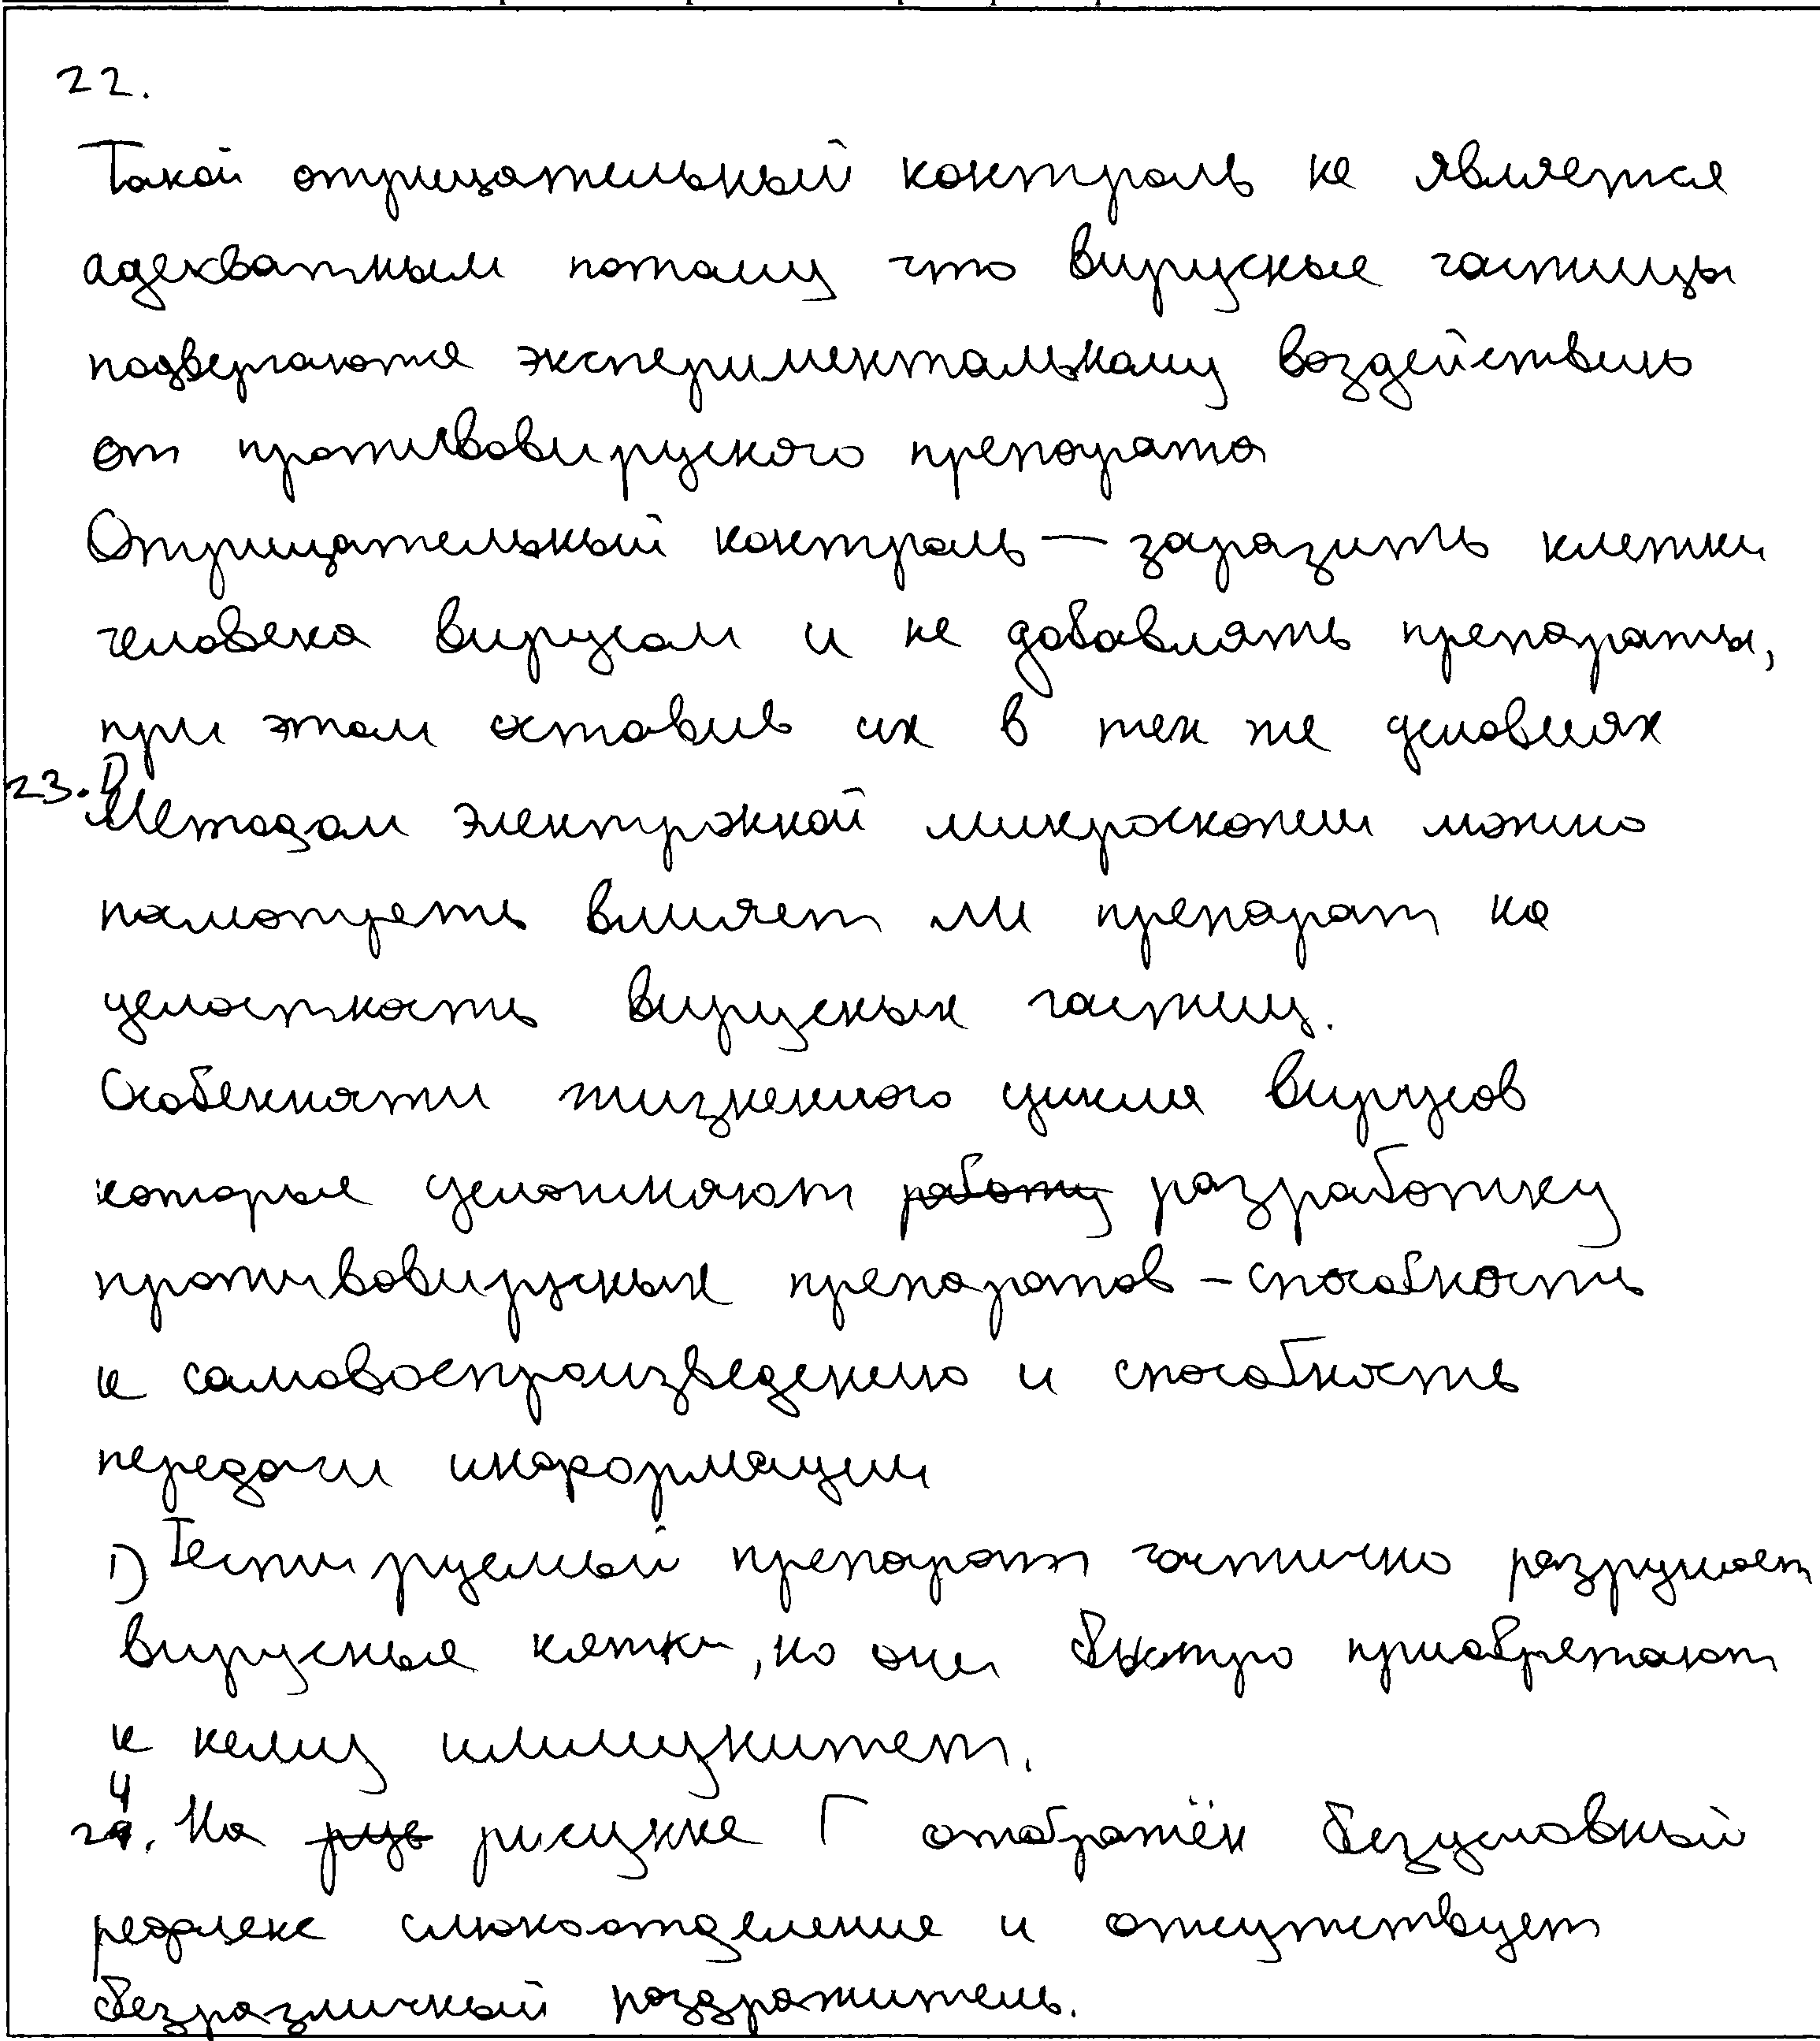 22.
Такой отрицательный контроль не является
адекватным потому что вирусные частицы
подвергаются экспериментальному воздействию
от противовируского препарата
Отрицательный контроль — заразить клетки
человека вирусом и не добавлять препараты,
при этом оставив их в тех же условиях
23.
Методом электронной микроскопии можно
посмотреть влияет ли препарат на
целостность вирусных частиц.
Особенности жизненного цикла вирусов
которые усложняют работу разработку
противовирусных препаратов - способность
к самовоспроизведению и способность
передачи информации
1) Тестируемый препарат частично разрушает
вирусные клетки, но они быстро приобретают
к нему иммунитет.
24. На рисунке Г отображён безусловный
рефлекс слюноотделение и отсутствует
безразличный раздражитель.